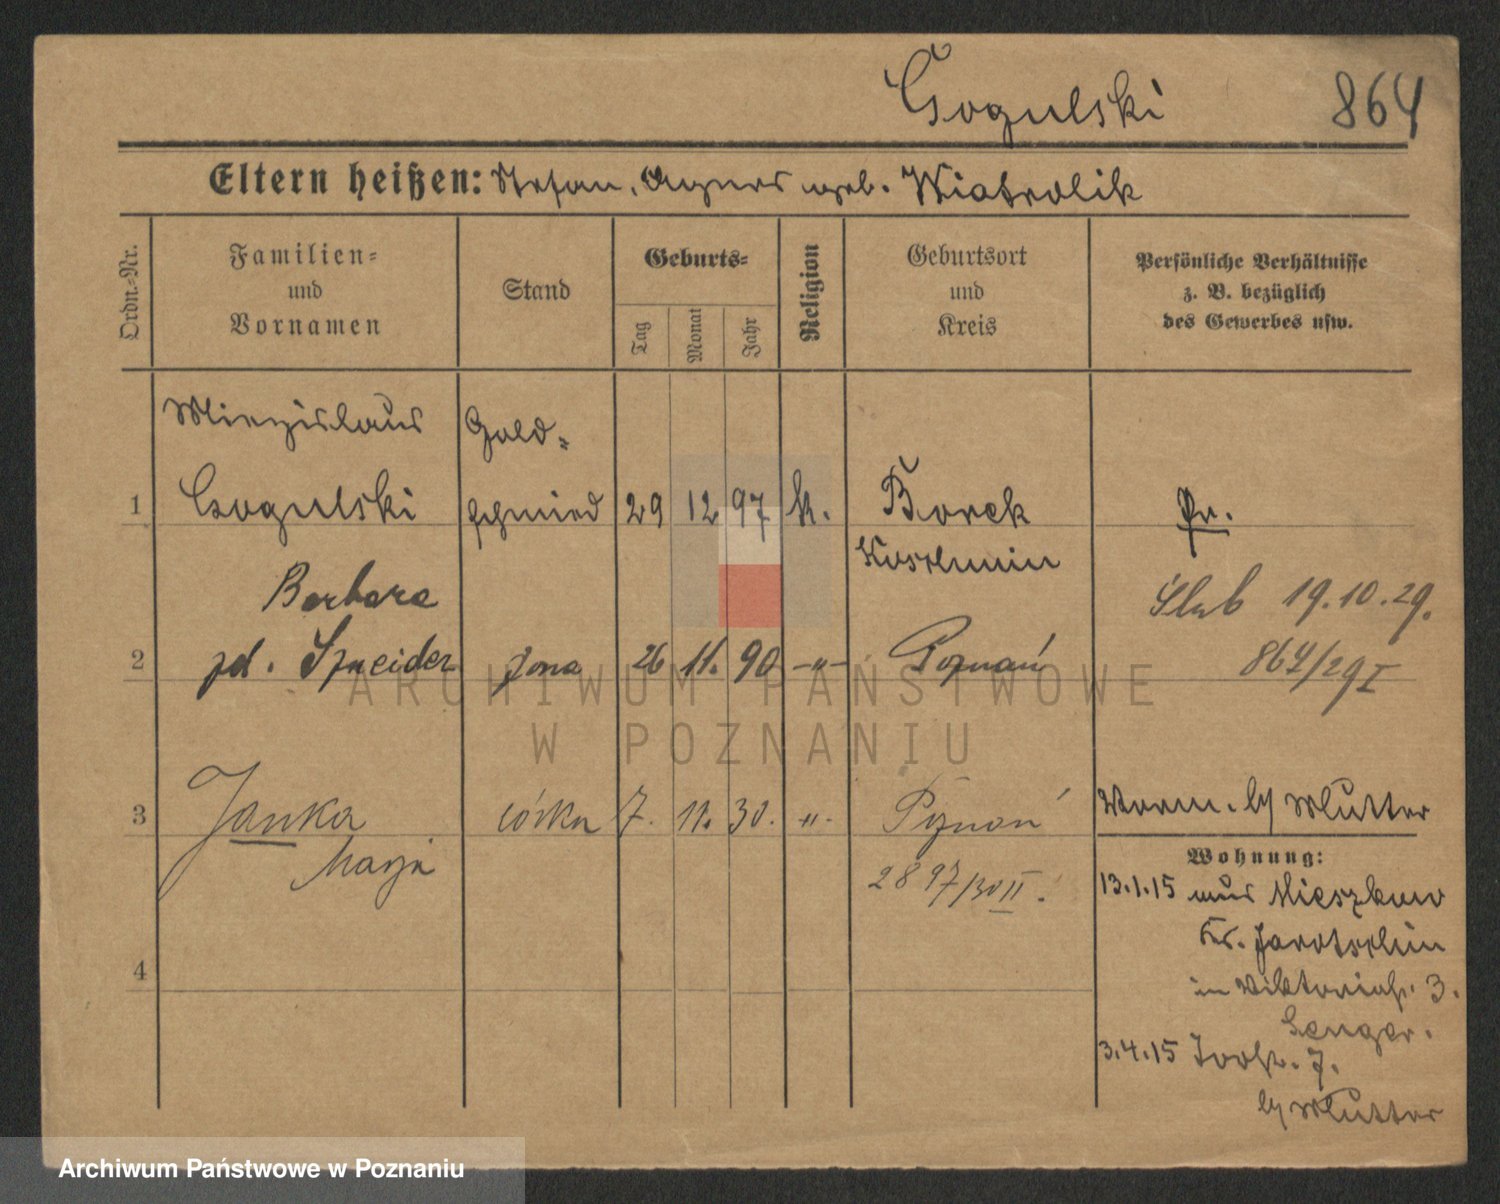 Gogulski 864
Eltern heißen: Stefan, Agnes geb. Wiatrolik
Ordn.-Nr.
Familien-
und
Vornamen
Stand
Geburts-
Tag
Monat
Jahr
Religion
Geburtsort
und
Kreis
Persönliche Verhältnisse
z. B. bezüglich
des Gewerbes usw.
Miezislaus Gold-
1 Gogulski schmied 29 12 97 k. Borek Pr.
Koschmin
Barbara Ślub 19.10.29.
2 zd. Szneider żona 26 11. 90 -"- Poznań 864/29 I
3 Janka córka 7. 11. 30. -"- Poznań Vorm. by Mutter
Marja 2897/30 II.
Wohnung:
13.1.15 aus Mieszkow
Kr. Jarotschin
4
in Viktoriastr. 3.
Senger.
3.4.15 7.
by Mutter
ARCHIWUM PAŃSTWOWE
W POZNANIU
Archiwum Państwowe w Poznaniu